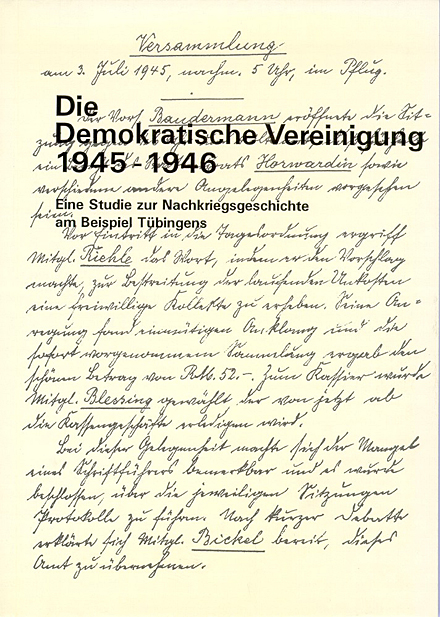 Versammlung
am 3. Juli 1945, nachm. 5 Uhr, im Pflug.
Der Vors. Baudermann eröffnete die Sit-
Die
Demokratische Vereinigung
1945-1946
Horwardin sowie
verschiedene andere Angelegenheiten vorgesehen
seien.
Eine Studie zur Nachkriegsgeschichte
am Beispiel Tübingens
Vor Eintritt in die Tagesordnung ergriff
Mitgl. Riehle das Wort, indem er den Vorschlag
machte, zur Bestreitung der laufenden Unkosten
eine freiwillige Kollekte zu erheben. Seine An-
regung fand einmütigen Anklang und die
sofort vorgenommene Sammlung ergab den
schönen Betrag von Rm. 52.-. Zum Kassier wurde
Mitgl. Blessing gewählt der von jetzt ab
die Kassengeschäfte erledigen wird.
Bei dieser Gelegenheit machte sich der Mangel
eines Schriftführers bemerkbar und es wurde
beschlossen, über die jeweiligen Sitzungen
Protokolle zu führen. Nach kurzer Debatte
erklärte sich Mitgl. Bickel bereit, dieses
Amt zu übernehmen.